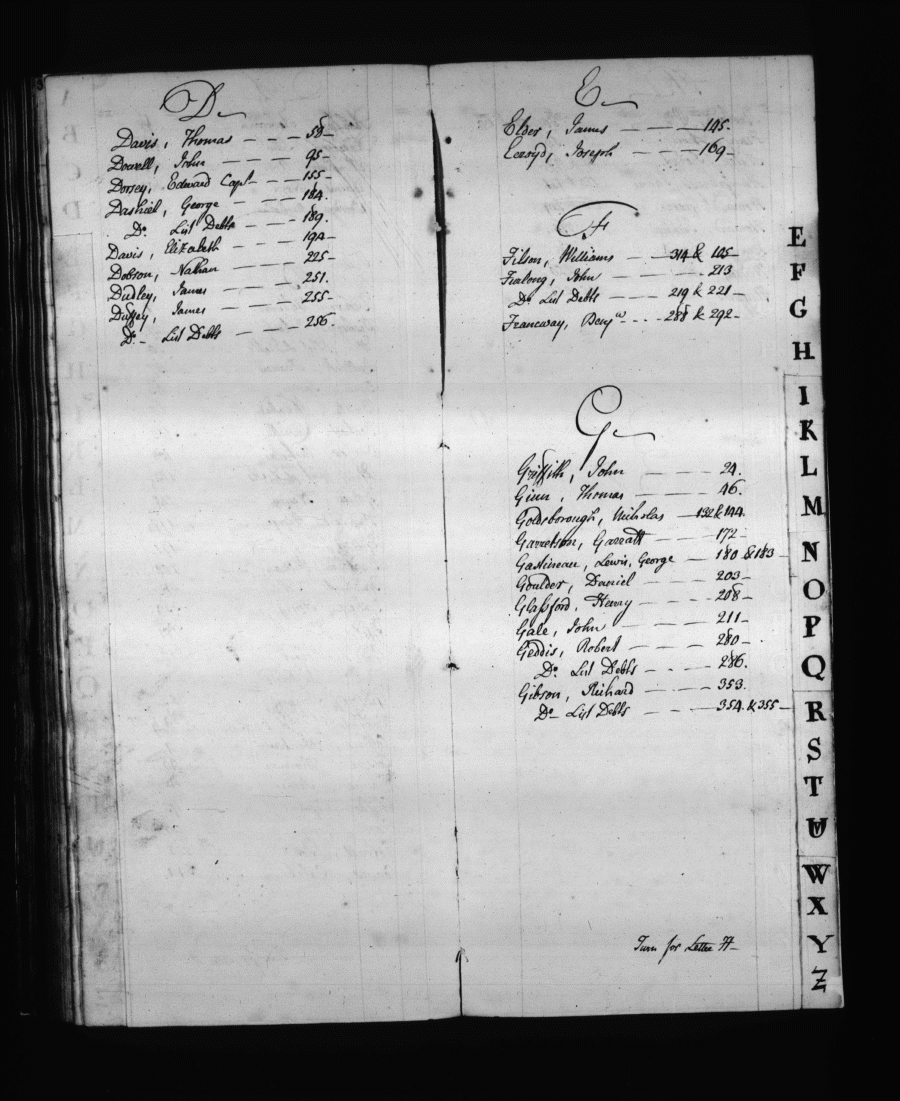 D
Davis, Thomas 58
Dowell, John 95
Dorsey, Edward Capt 155
Dashiel, George 184
Do List Debts 189
Davis, Elizabeth 194
Dobson, Nathan 225
Dudley, James 251.
Duffey, James 255
Do List Debts 256
E
Elder, James 145.
Joseph 169
F
Filson, Williams 314 & 145
John 213
Do List Debts 219 & 221
Francway, Benj 288 & 292
G
Griffith, John 24.
Ginn, Thomas 46.
Goldsborough, Nicholas 132 & 144
Garretson, Garratt 172
Gastineau, Lewis, George 180 & 183
Goulder, Daniel 203
Glassford, Henry 208
Gale, John 211
Geddis, Robert 280
Do List Debts 286.
Gibson, Richard 353.
Do List Debts 354. & 355
Turn for Letter H
E
F
G
H
I
K
L
M
N
O
P
Q
R
S
T
W
X
Y
Z